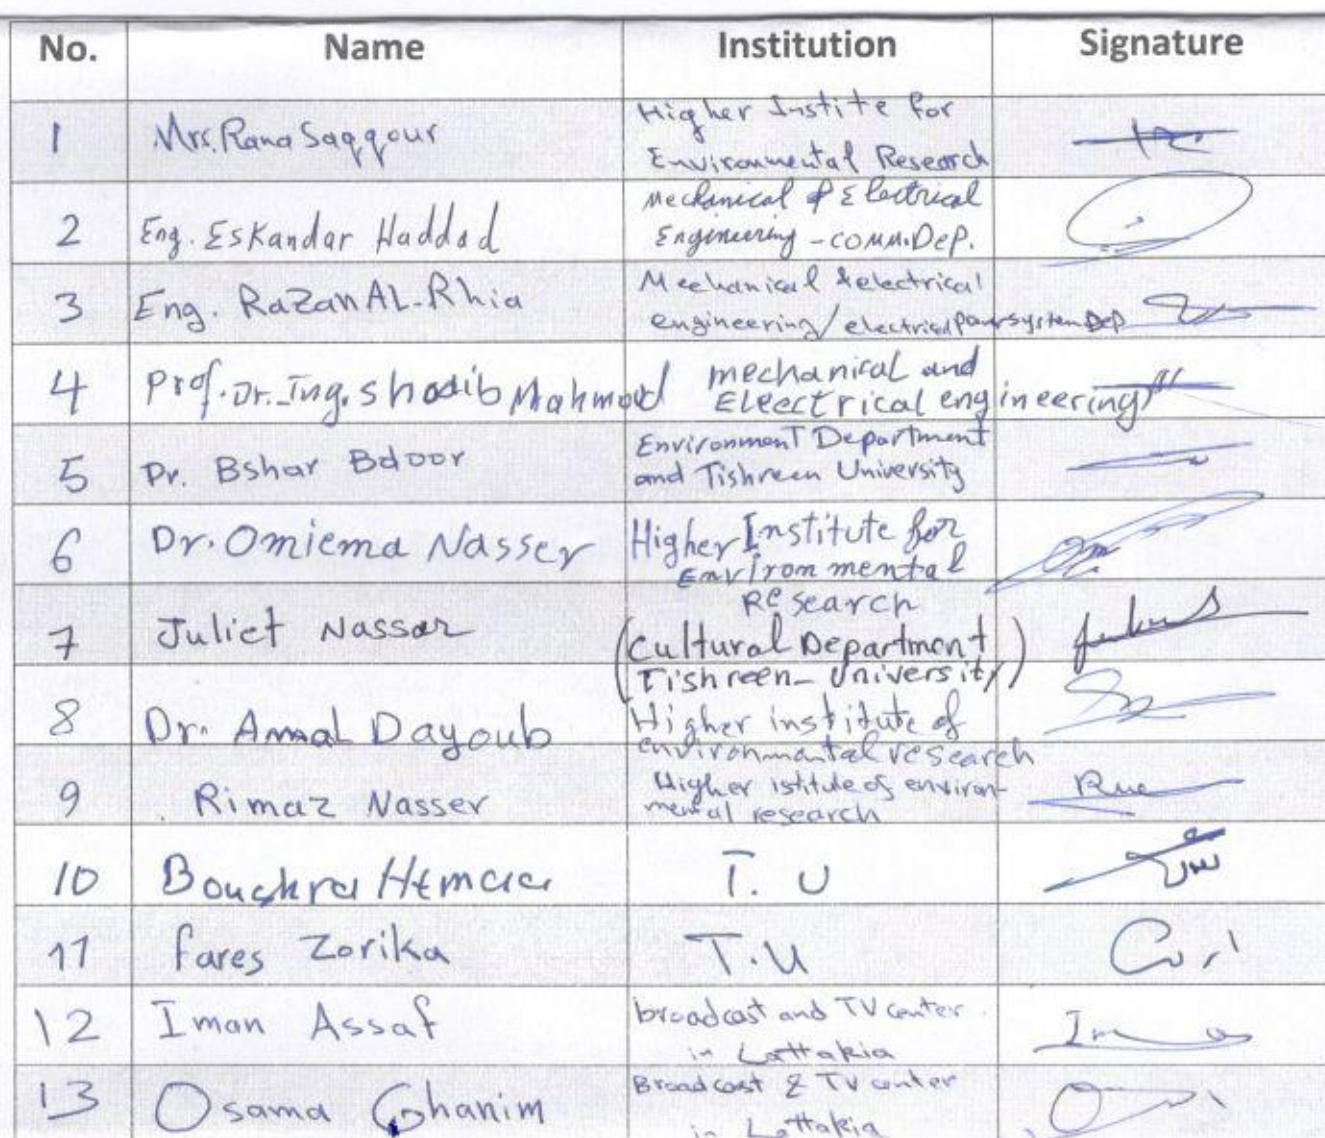 No. Name Institution Signature
1 Mrs. Rana Saqqour Higher Instite for
Environmental Research
2 Eng. Eskandar Haddad Mechinical & Electrical
Engineering - comm.Dep.
3 Eng. Razan AL-Rhia Mechanical & electrical
engineering/ electrical power system Dep
4 Prof. Dr. Ing. Shadib Mahmod mechanical and
Electrical engineering
5 Dr. Bshar Bdoor Environment Department
and Tishreen University
6 Dr. Omiema Nasser Higher Institute for
Environmental
Research
7 Juliet Nassar (Cultural Department
Tishreen-University)
8 Dr. Amal Dayoub Higher institute of
environmantal research
9 Rimaz Nasser Higher istitute of environ-
mental research
10 Bouchra T. U
11 fares Zorika T.U
12 Iman Assaf broadcast and TV center
in Lattakia
13 Osama Ghanim Broadcast & TV center
in Lattakia